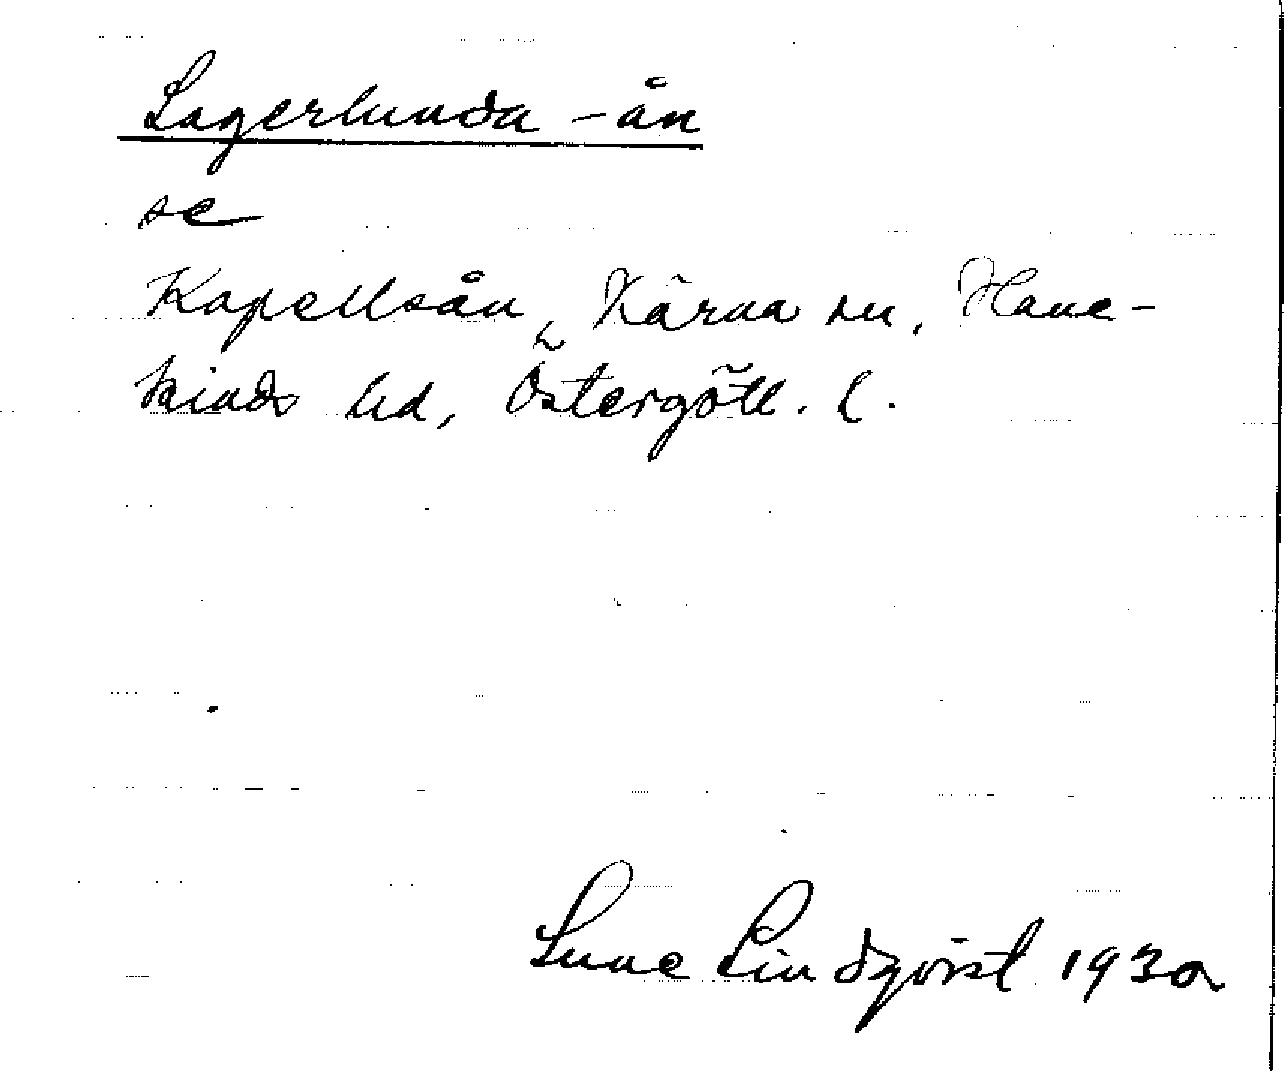 Lagerlunda -ån
se
Kapellsån, Kärna sn, Hane-
kinds hd, Östergötl. l.
Sune Lindqvist 1930